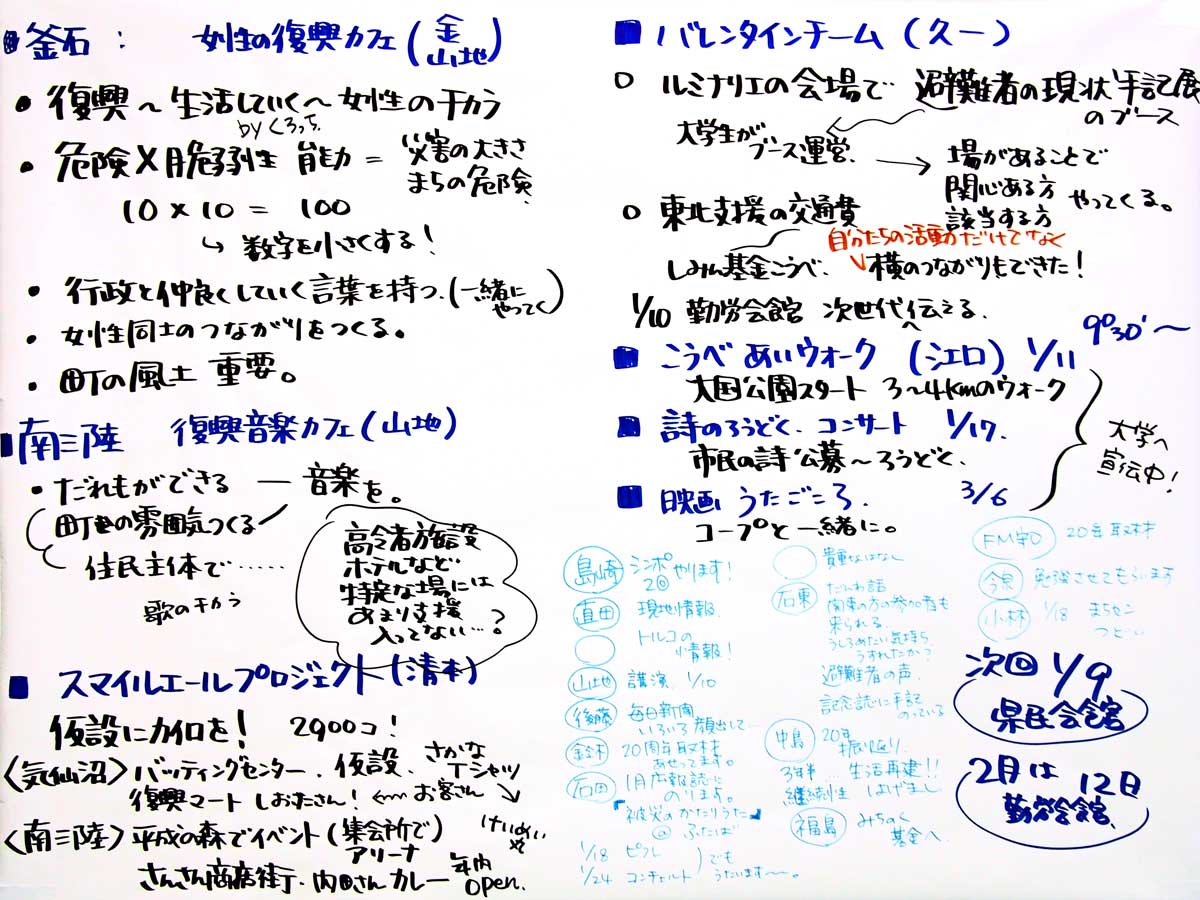 釜石： 女性の復興カフェ(金 山地)
・復興～生活していく～女性のチカラ
by くろっち
・危険×脆弱性 能力 = 災害の大きさ
まちの危険
10×10 = 100
↳ 数字を小さくする!
・行政と仲良くしていく言葉を持つ、(一緒に
やってく)
・女性同士のつながりをつくる。
・町の風土 重要。
■南三陸 復興音楽カフェ(山地)
・だれもができる — 音楽を。
町の雰囲気つくる
住民主体で……
歌のチカラ
高令者施設
ホテルなど
特定な場には
あまり支援
入ってない…?
■ スマイルエールプロジェクト(清本)
仮設にカイロを! 2900コ!
〈気仙沼〉バッティングセンター、仮設、さかな
Tシャツ
復興マート しおたさん! ← お客さん
〈南三陸〉平成の森でイベント(集会所で)
アリーナ
さんさん商店街、内田さん カレー 年内
open.
■ バレンタインチーム (久一)
○ ルミナリエの会場で 避難者の現状 手記展
のブース
大学生が
ブース運営、
→ 場があることで
関心ある方 やってくる。
該当する方
○ 東北支援の交通費
自分たちの活動だけでなく
しみん基金こうべ、横のつながりもできた!
1/10 勤労会館 次世代へ伝える、
■ こうべ あいウォーク (シェロ) 1/11 9:30'～
大国公園スタート 3～4kmのウォーク
■ 詩のろうどく、コンサート 1/17.
市民の詩 公募～ろうどく、
■ 映画 うたごころ、 3/6
コープと一緒に。
大学へ
宣伝中!
島崎 シンポ
2回 やります!
直田 現地情報
トルコの
情報!
山地 講演、1/10
後藤 毎日新聞
いろいろ顔出して…
鈴木 20周年取材
あせってます。
石田 1月広報誌に
のります。
「被災のかたりうた」
@ ふたば
1/18 ピフレ
1/24 コンチェルト でも
うたいます～。
貴重なはなし
石東 だんわ話
関東の方の参加者も
来られる
うしろめたい気持ち、
うすれたか?
避難者の声、
記念誌に手記
のっている
中島 20年
振り返り、
3年半… 生活再建!!
継続性 はげまし
福島 みちのく
基金へ
FMヤロ 20年取材
今泉 勉強させてもらいます
小林 1/18 まちセン
つどい
次回 1/9
県民会館
2月は 12日
勤労会館、